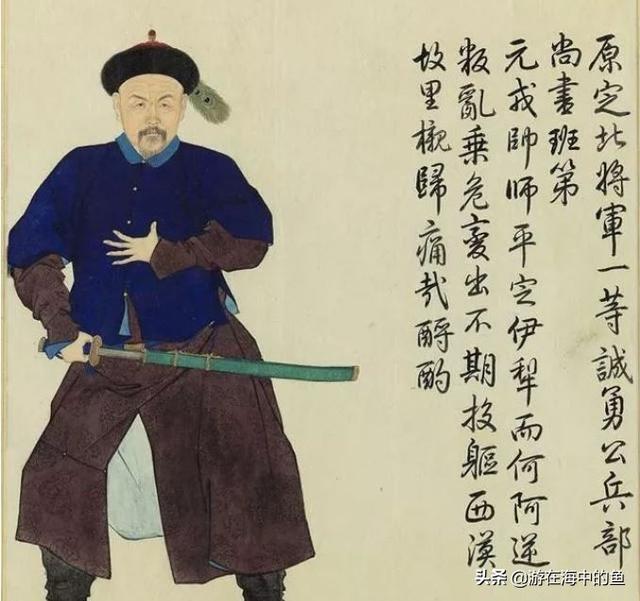 原定北將軍一等誠勇公兵部
尚書班第
元戎帥師平定伊犁而何阿逆
叛亂乗危變出不期投軀西漠
故里櫬歸痛哉酹酌
头条@游在海中的鱼